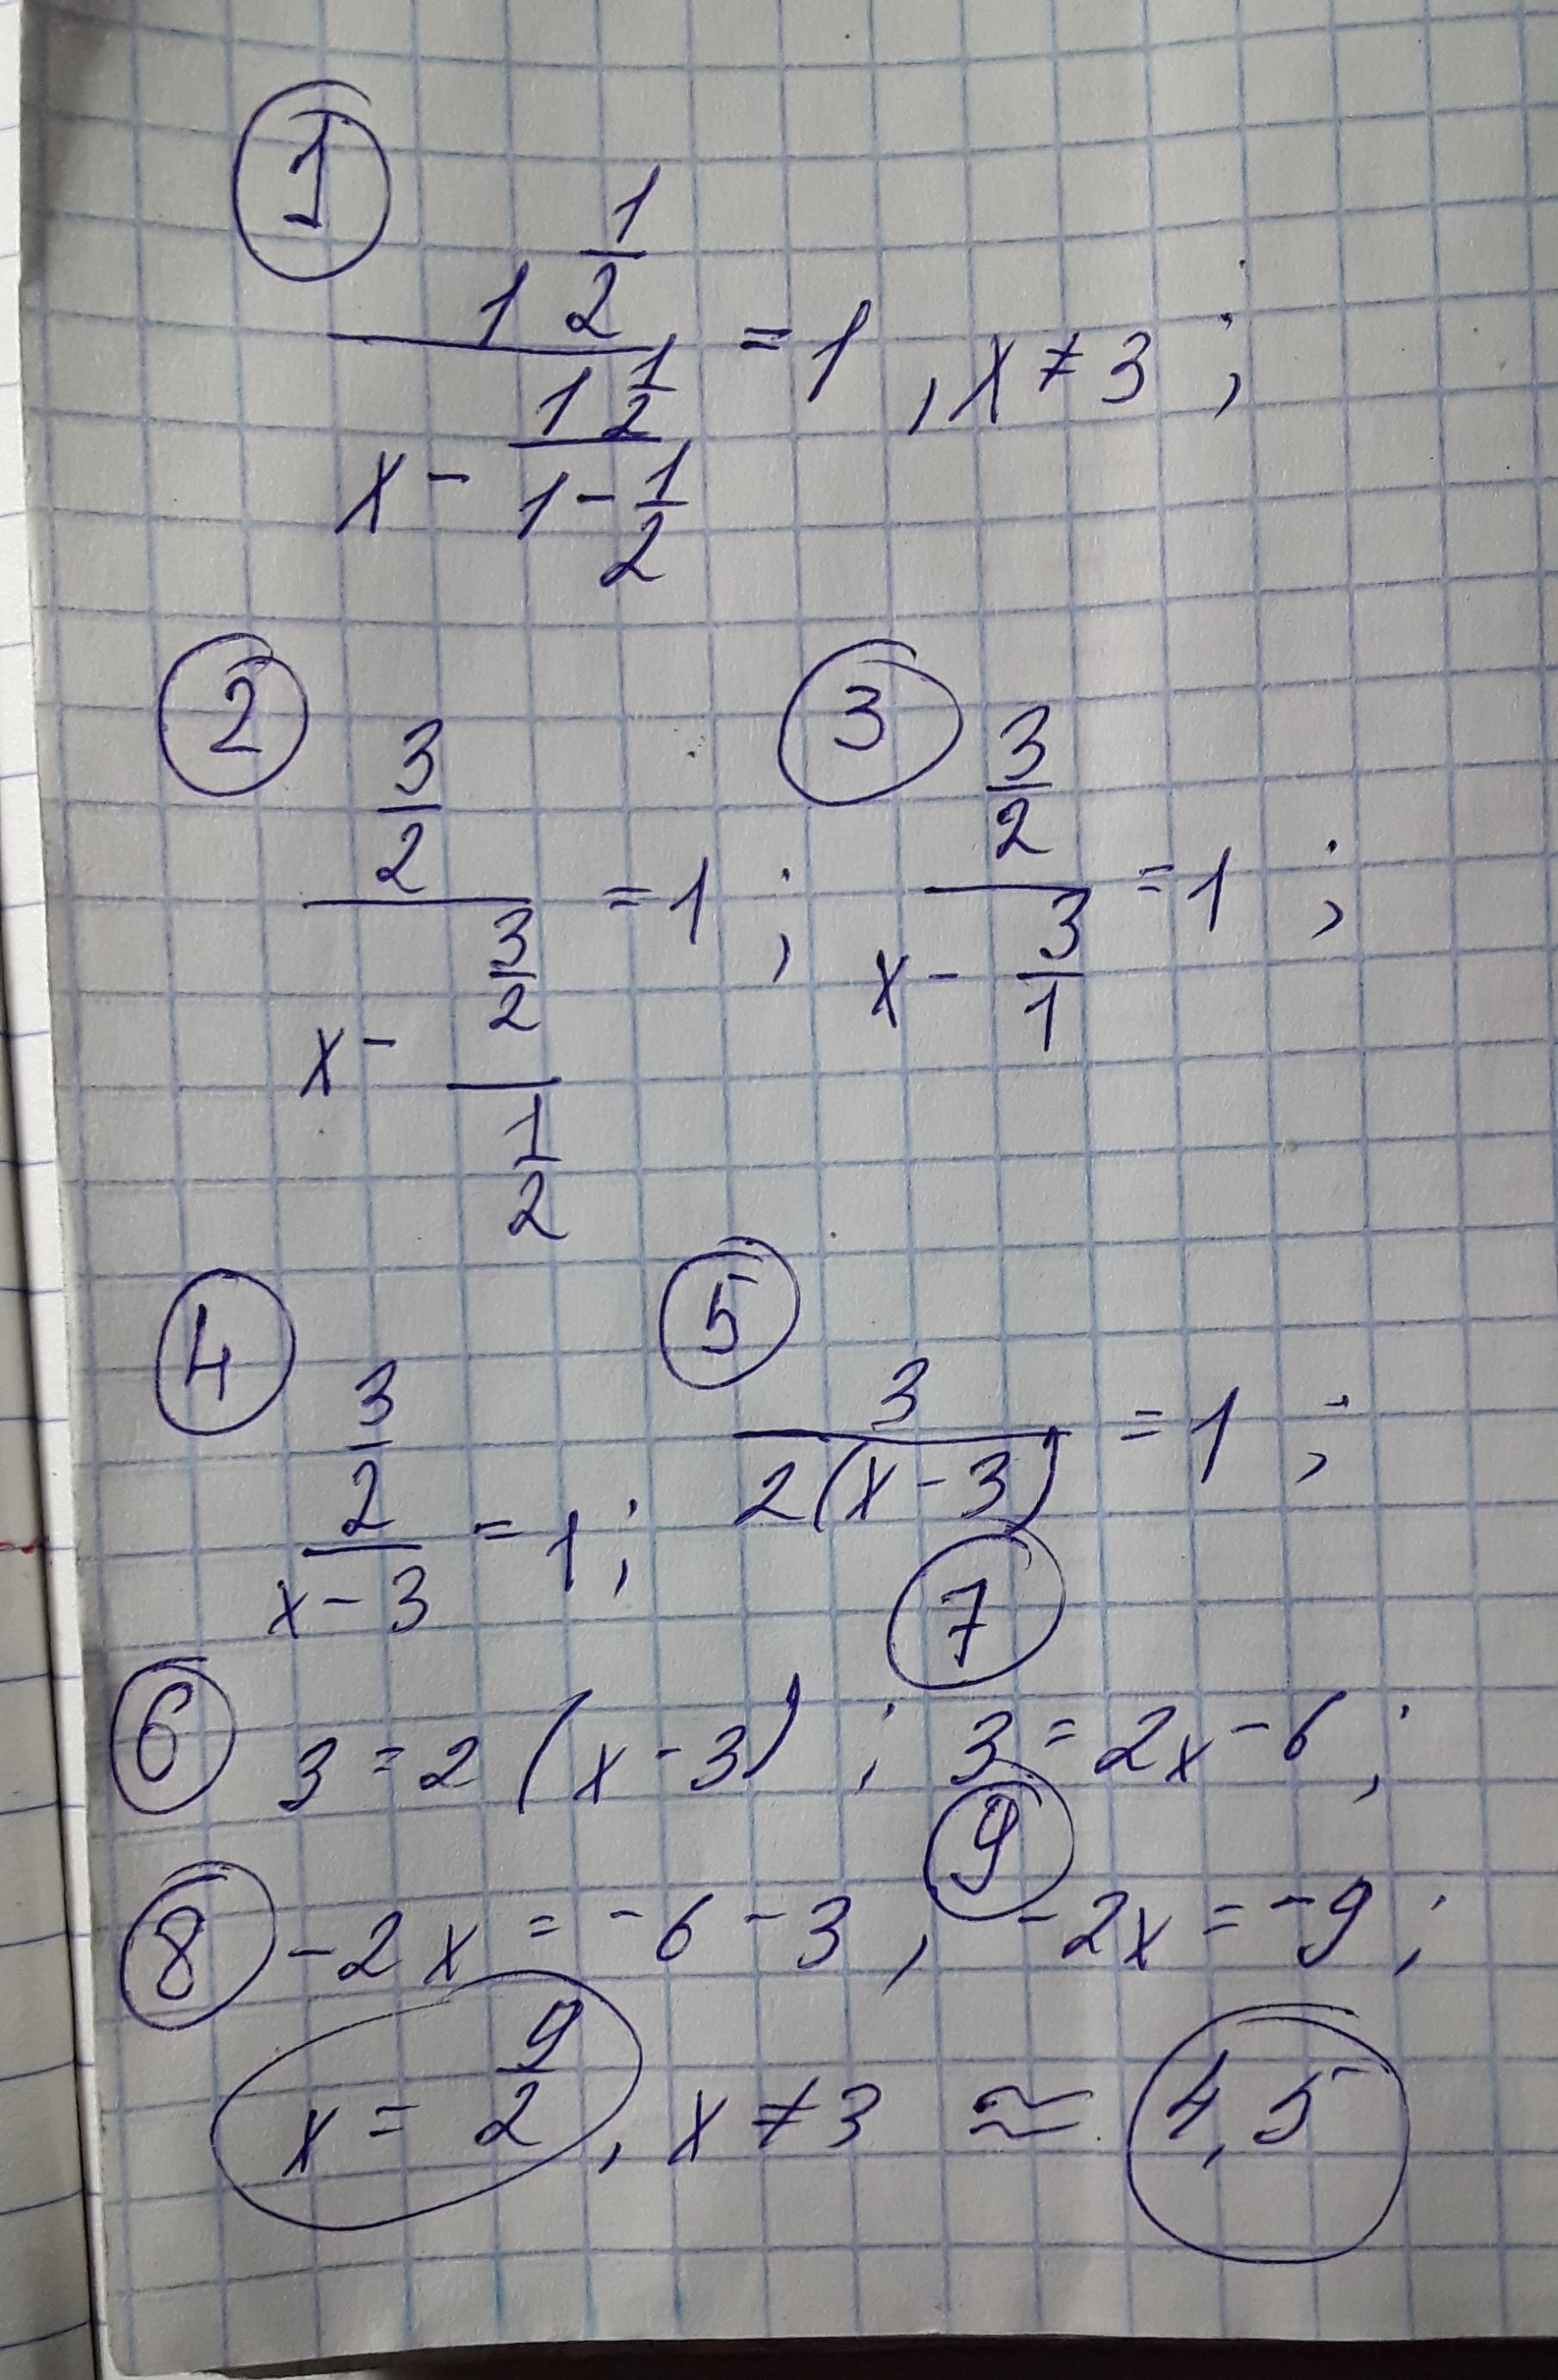 ①
1 1/2 / (x - (1 1/2)/(1 - 1/2)) = 1 , x ≠ 3 ;
② (3/2) / (x - (3/2)/(1/2)) = 1 ; ③ (3/2) / (x - 3/1) = 1 ;
④ (3/2) / (x - 3) = 1 ; ⑤ 3 / 2(x - 3) = 1 ;
⑥ 3 = 2 (x - 3) ; ⑦ 3 = 2x - 6 ;
⑧ - 2x = - 6 - 3 , ⑨ - 2x = - 9 ;
x = 9/2 , x ≠ 3 ≈ 4,5